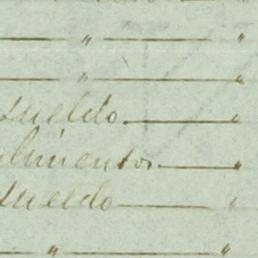 " "
" "
Sueldo "
alimentos "
Sueldo "
" "